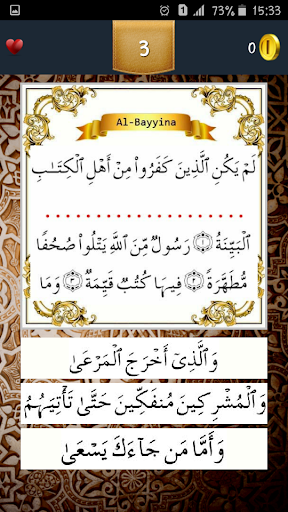 73% 15:33
3
0
Al-Bayyina
لَمْ يَكُنِ ٱلَّذِينَ كَفَرُوا۟ مِنْ أَهْلِ ٱلْكِتَـٰبِ
..............................
ٱلْبَيِّنَةُ ﴿١﴾ رَسُولٌ مِّنَ ٱللَّهِ يَتْلُوا۟ صُحُفًا
مُّطَهَّرَةً ﴿٢﴾ فِيهَا كُتُبٌ قَيِّمَةٌ ﴿٣﴾ وَمَا
وَٱلَّذِىٓ أَخْرَجَ ٱلْمَرْعَىٰ
وَٱلْمُشْرِكِينَ مُنفَكِّينَ حَتَّىٰ تَأْتِيَهُمُ
وَأَمَّا مَن جَآءَكَ يَسْعَىٰ